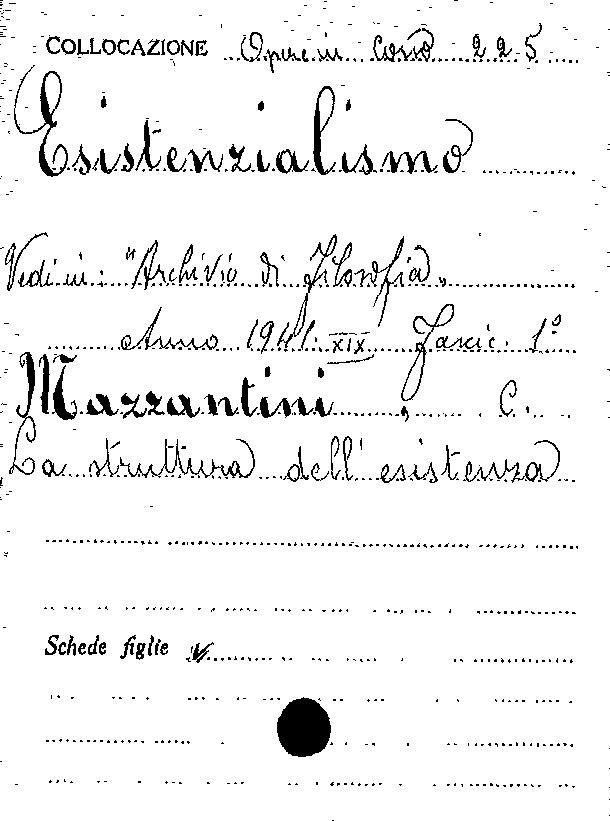 COLLOCAZIONE Opere in corso 225
Esistenzialismo
Vedi in: "Archivio di Filosofia"
Anno 1941. XIX Fascic. 1º
Mazzantini, C.
La struttura dell'esistenza
Schede figlie